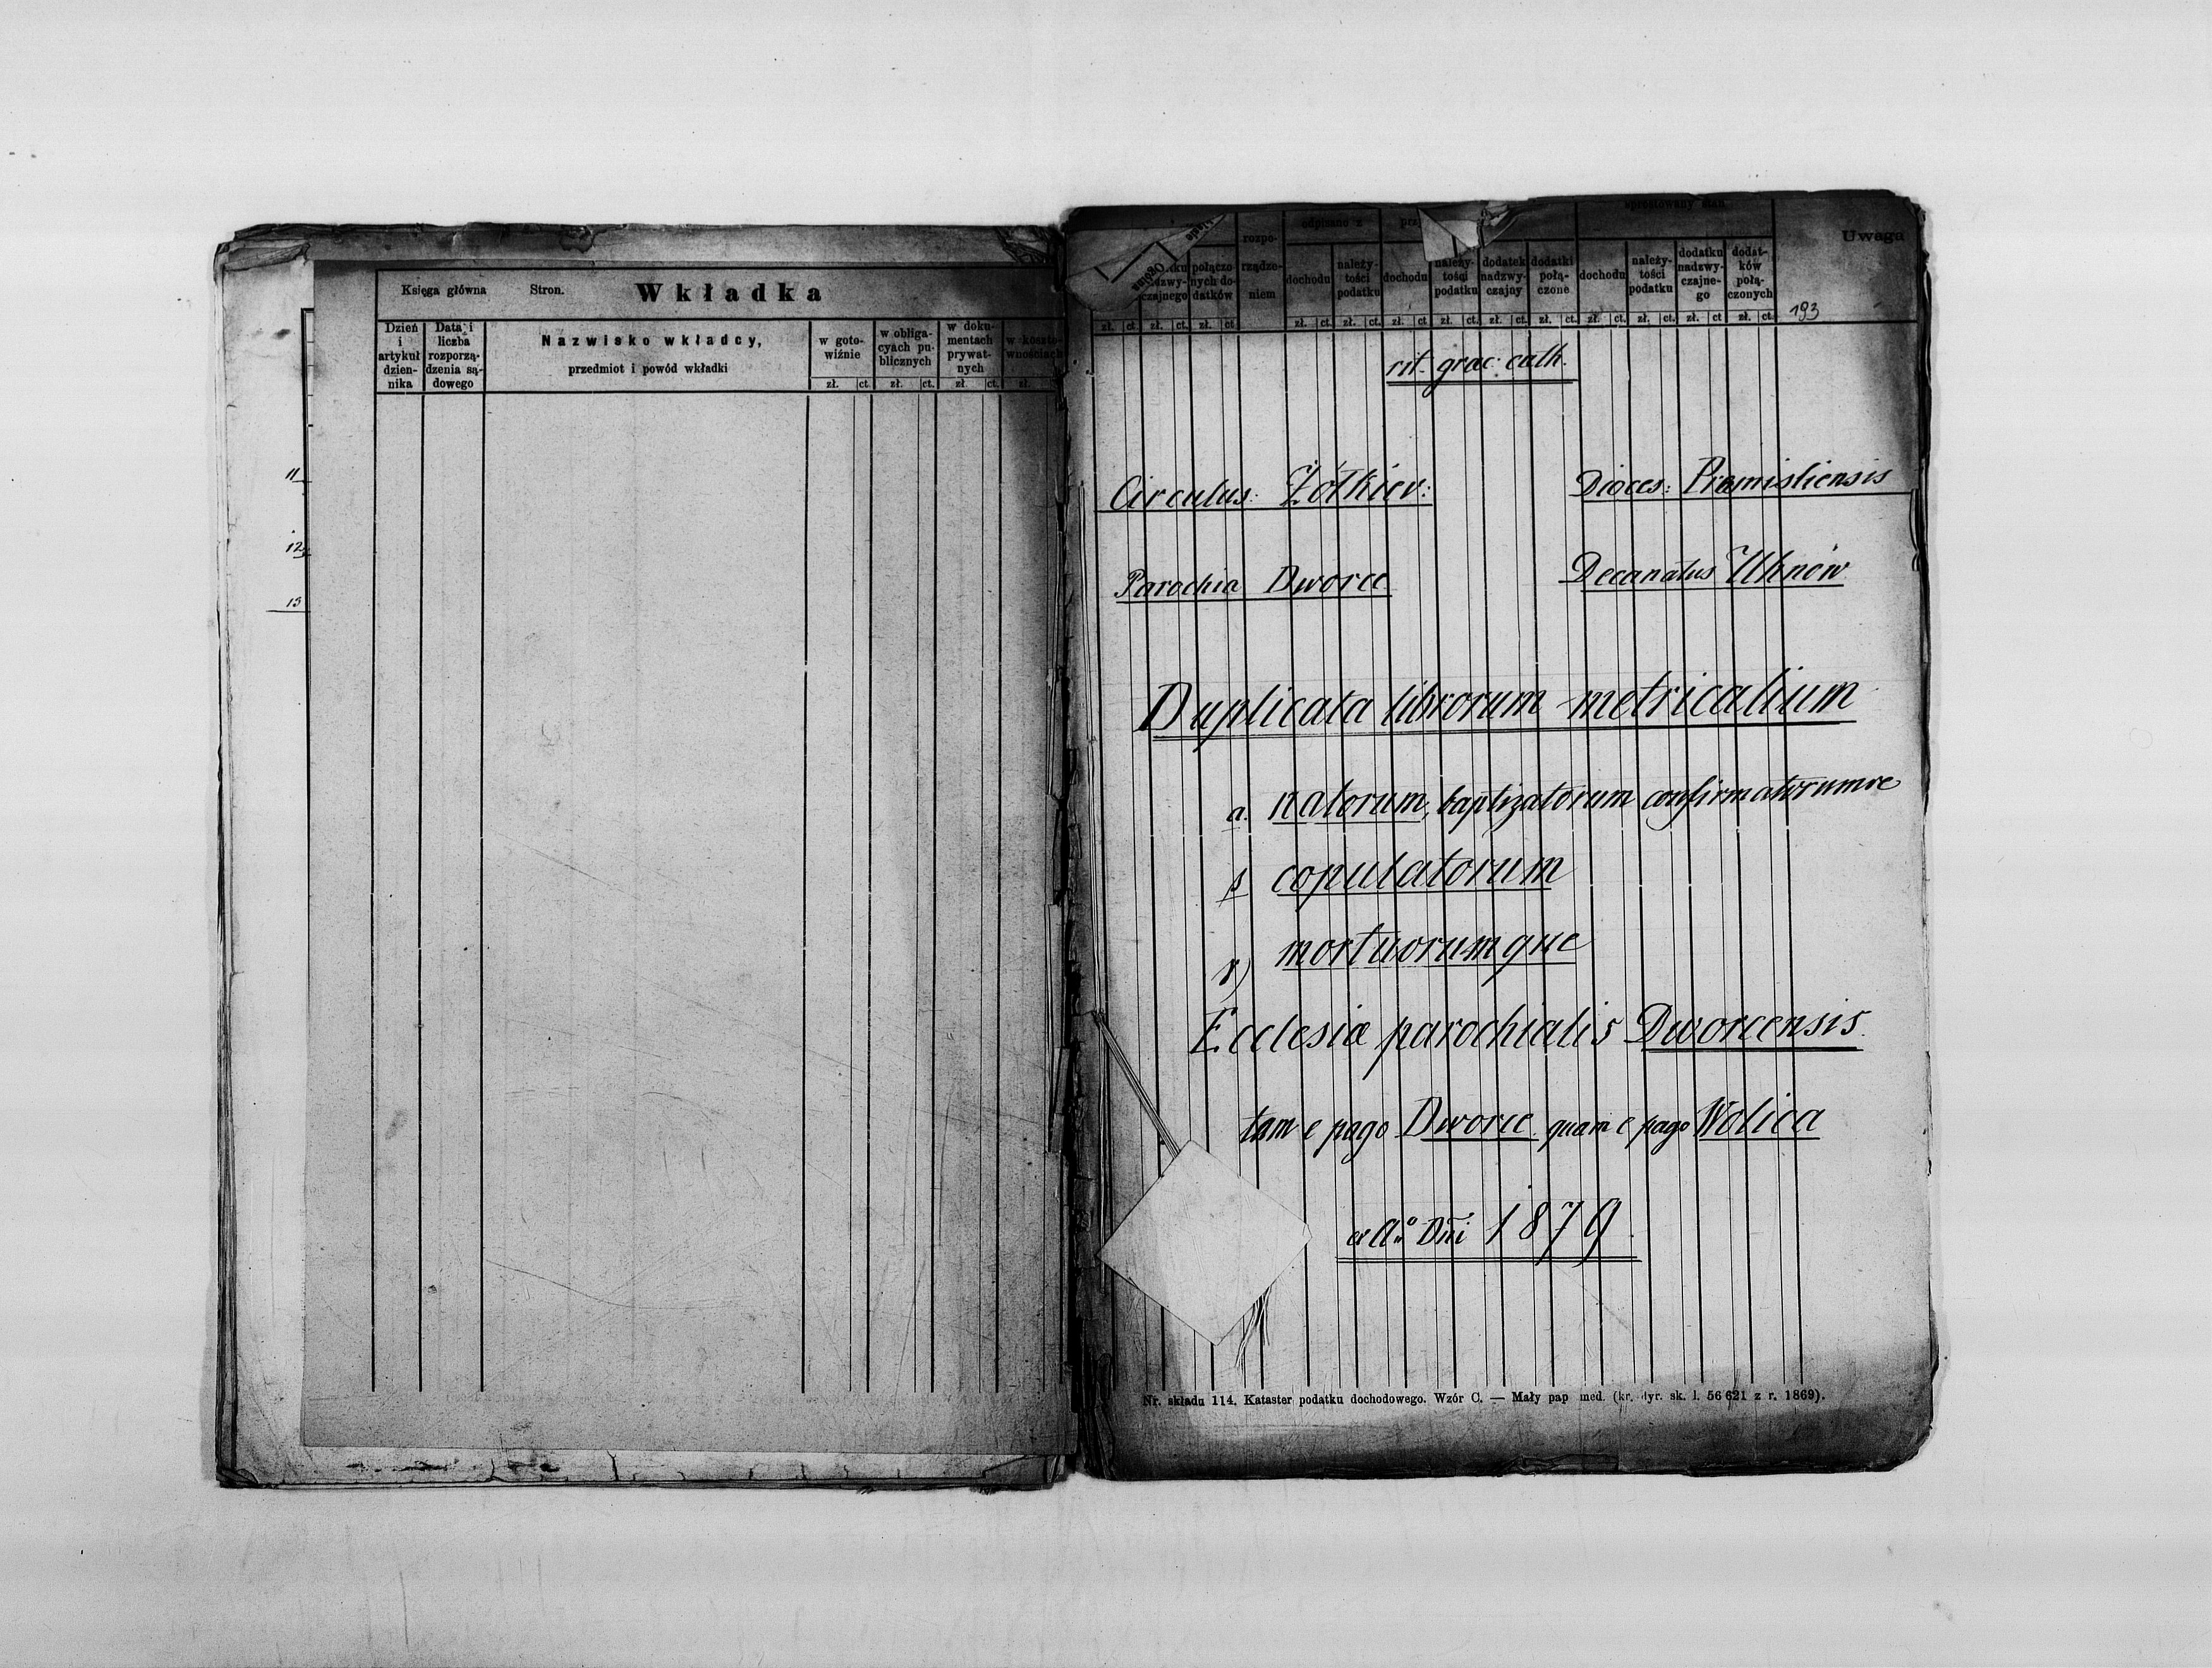 Księga główna Stron. Wkładka
Dzień i artykuł dzien- nika
Data i liczba rozporzą- dzenia są- dowego
Nazwisko wkładcy,
przedmiot i powód wkładki
w goto- wiźnie
w obliga- cyach pu- blicznych
w doku- mentach prywat- nych
w koszto- wnościach
zł. ct. zł. ct. zł. ct. zł.
11
12
13
odpisano z
sprostowany stan
Uwaga
połączo- nych do- datków
rozpo- rządze- niem
dochodu
należy- tości podatku
dochodu
należy- tości podatku
dodatek nadzwy- czajny
dodatki połą- czone
dochodu
należy- tości podatku
dodatku nadzwy- czajne- go
dodat- ków połą- czonych
zł. ct. zł. ct. zł. ct. zł. ct. zł. ct. zł. ct. zł. ct. zł. ct. zł. ct. zł. ct. zł. ct. zł. ct. zł. ct.
193
rit. grac: cath.
Circulus: Żółkiev: Dioces: Premisliensis
Parochia Dworce Decanatus Uhnów
Duplicata librorum metricalium
a. natorum, baptizatorum confirmatorumve
β copulatorum
γ) mortuorumque
Ecclesiæ parochialis Dworcensis.
tam e pago Dworce quam e pago Wolica
Dni 1879.
Nr. składu 114. Kataster podatku dochodowego. Wzór C. — Mały pap med. (kr. dyr. sk. l. 56 621 z r. 1869).